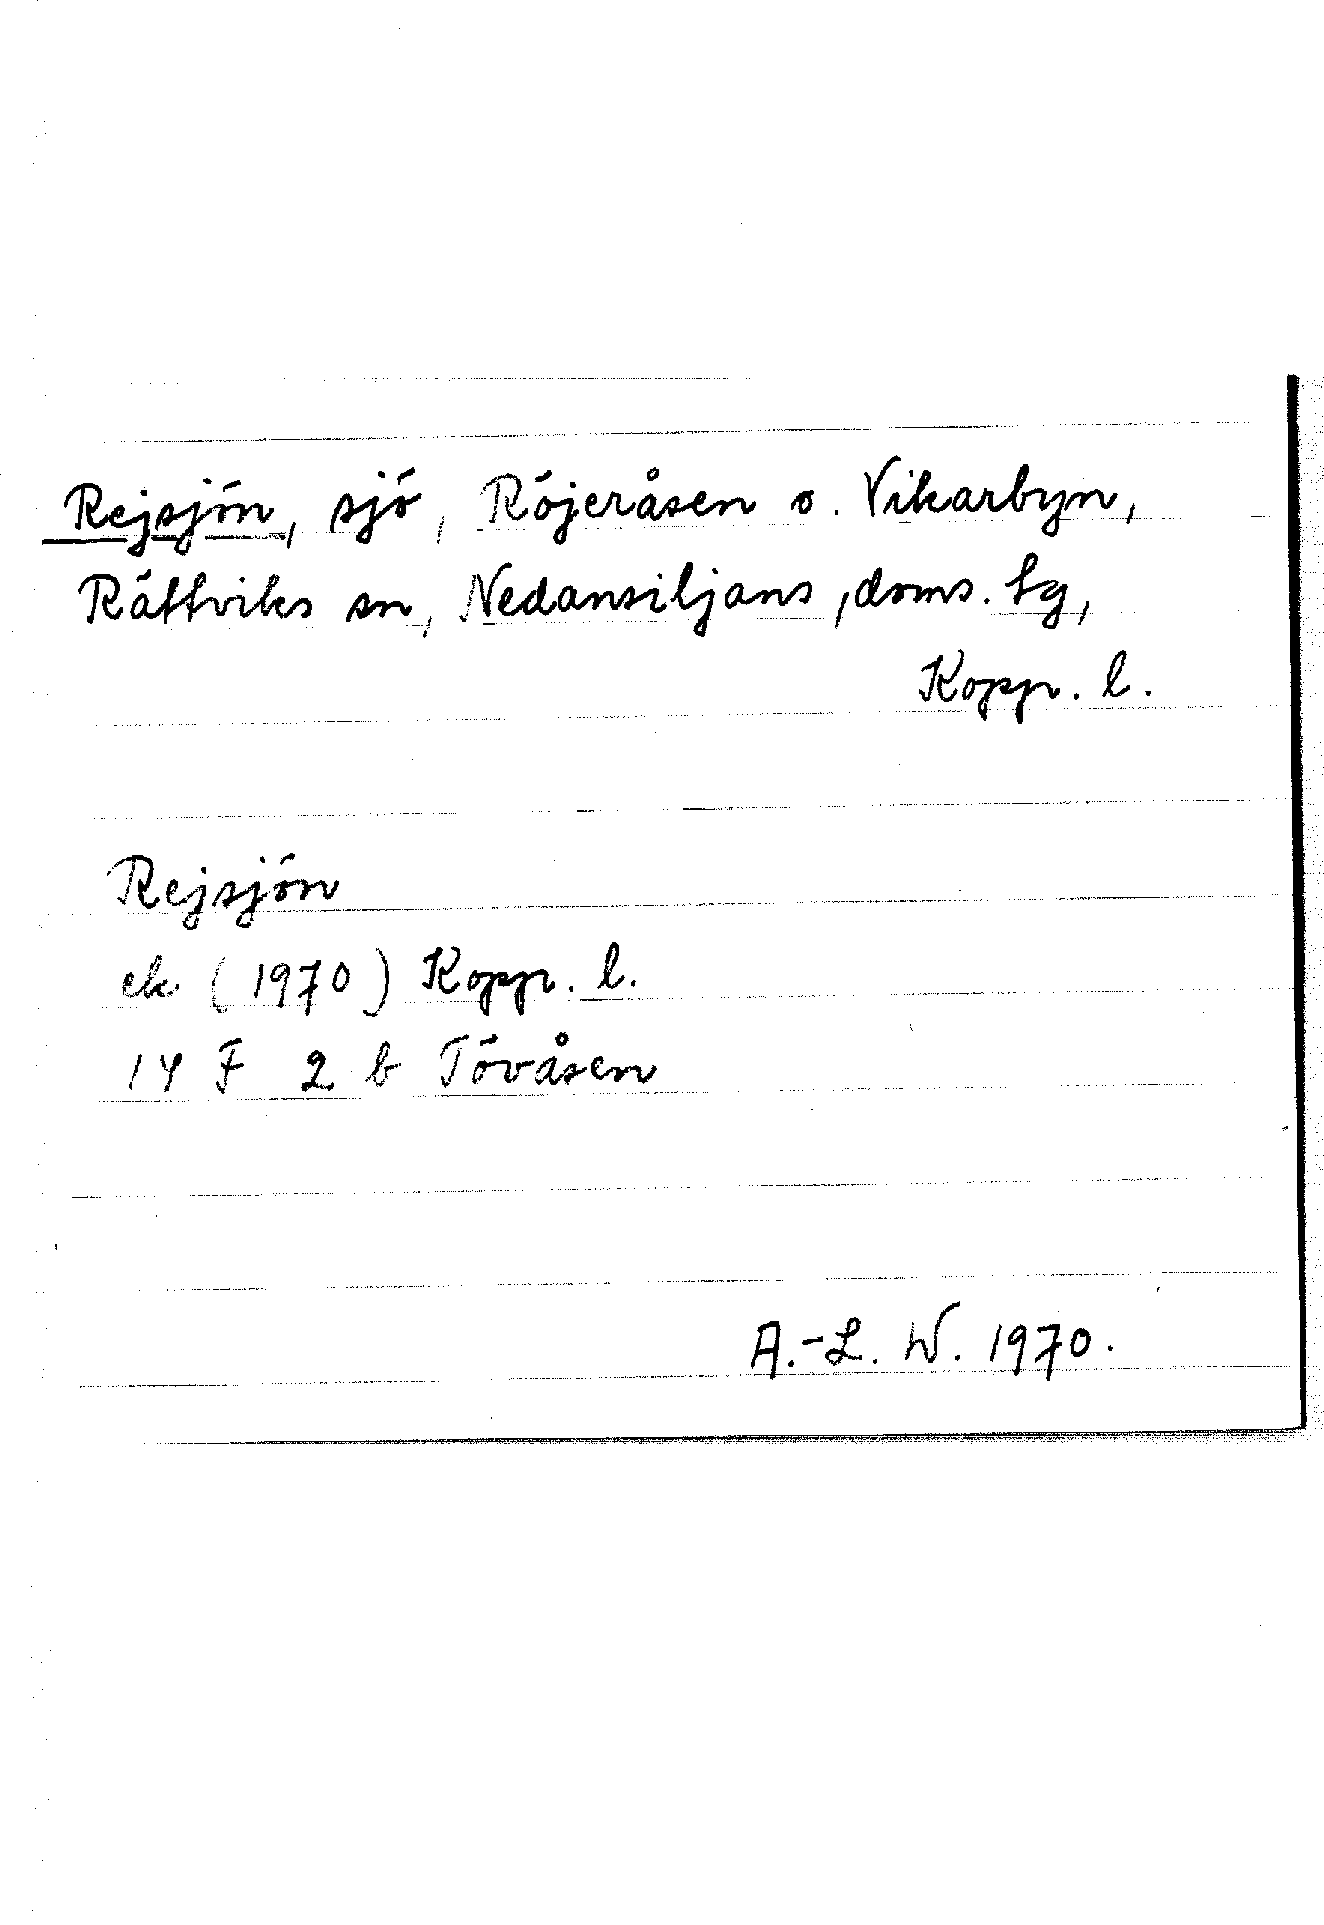 Rejsjön, sjö, Röjeråsen o. Vikarbyn,
Rättviks sn, Nedansiljans, doms. tg,
Kopp. l.
Rejsjön
ek (1970) Kopp. l.
14 F 2 b Tövåsen
A.-L. W. 1970.